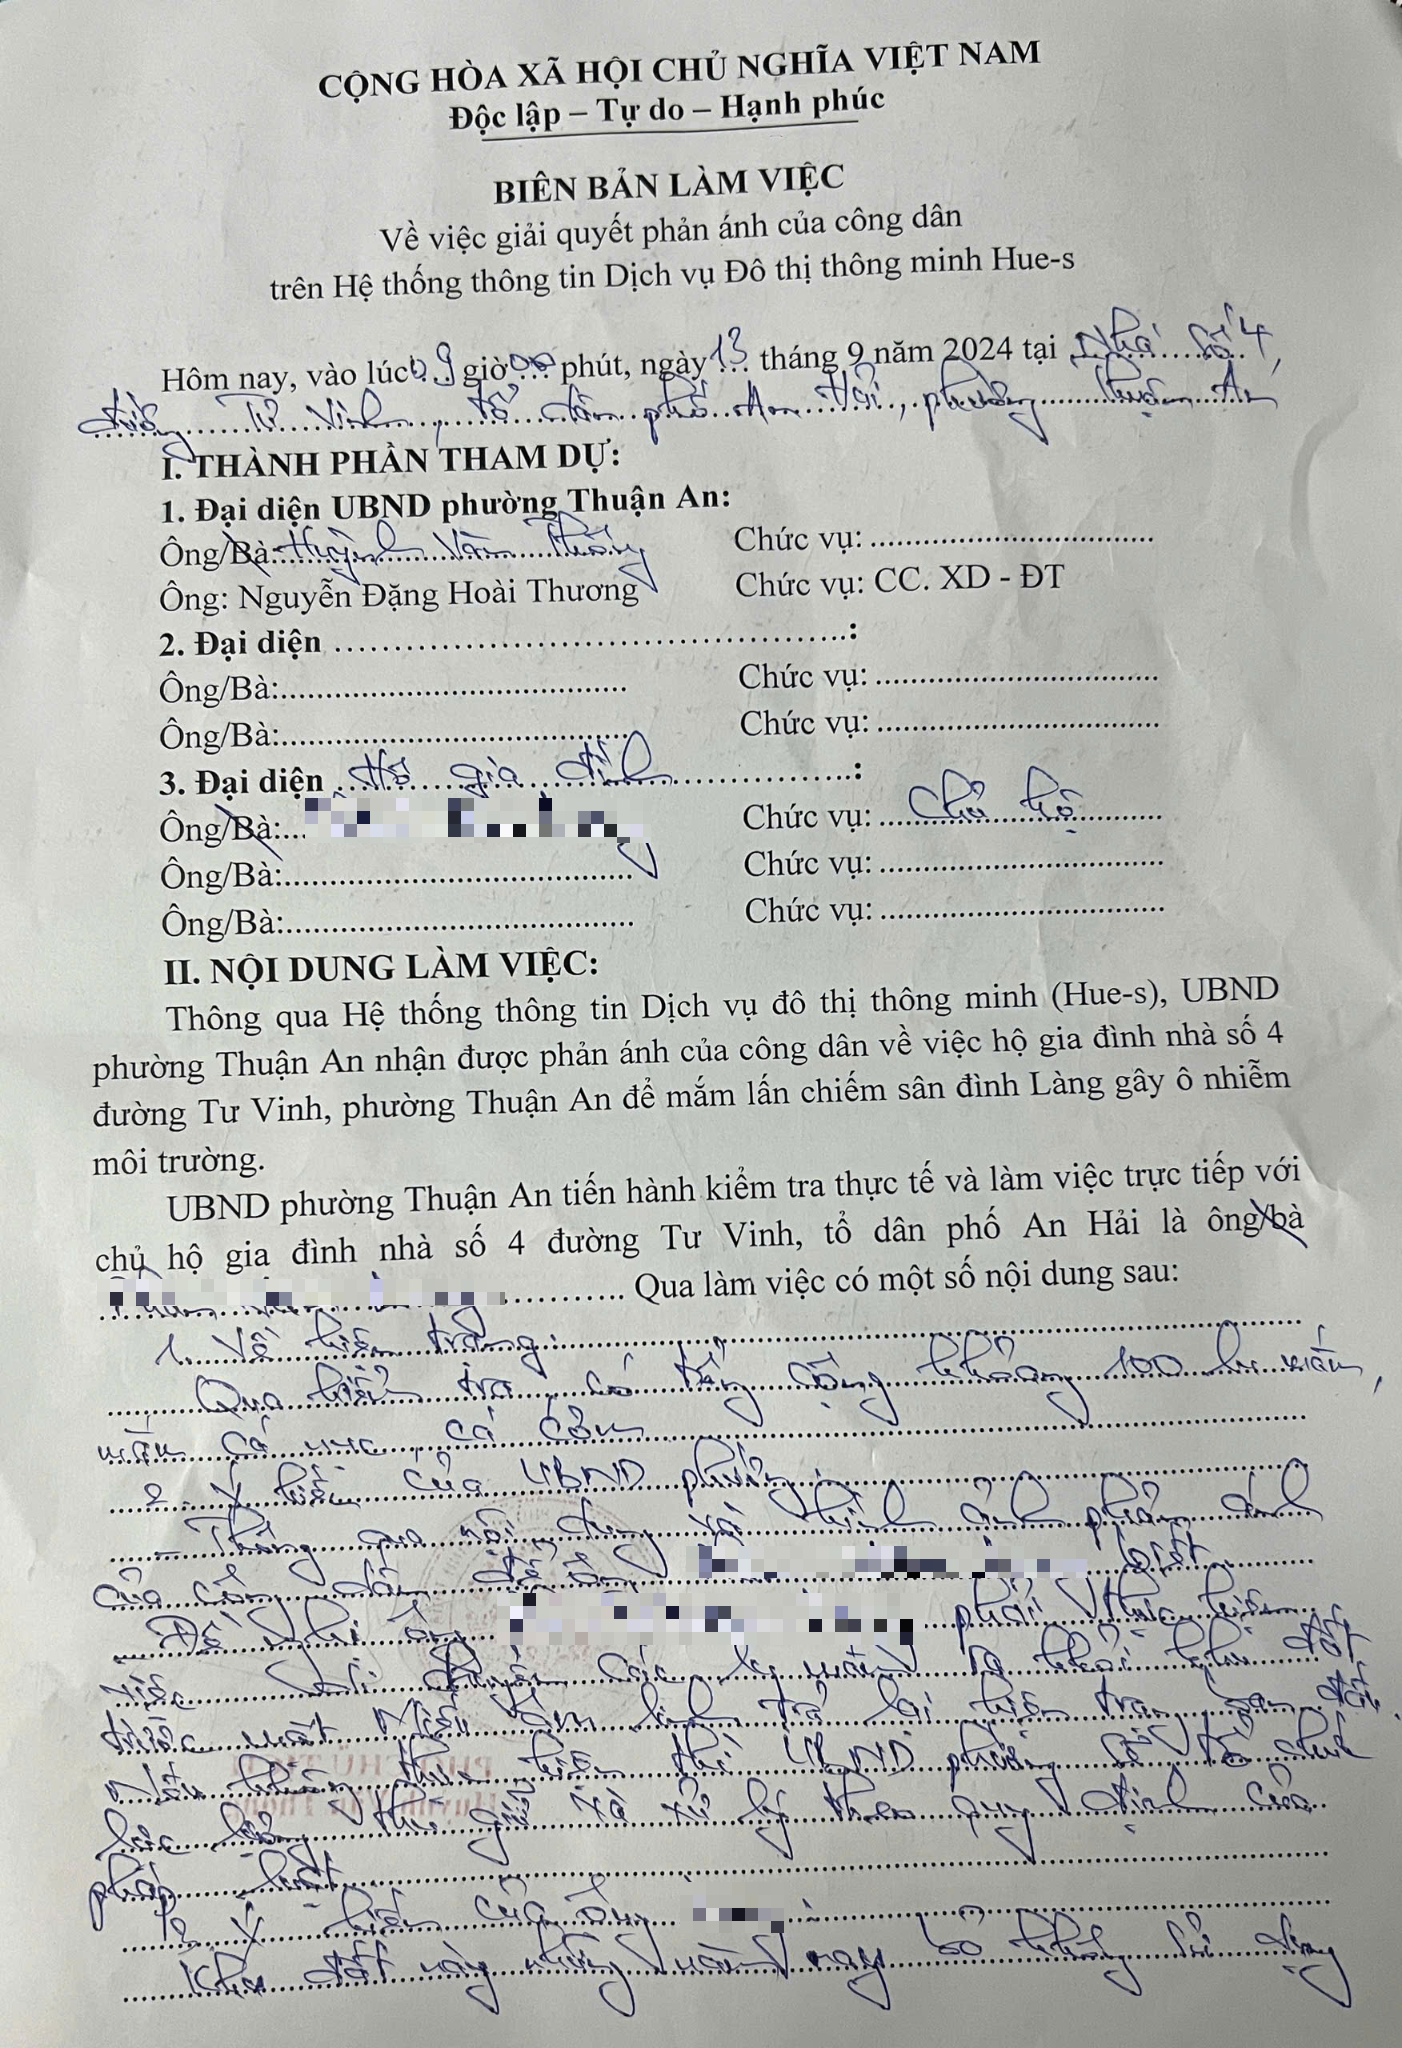 CỘNG HÒA XÃ HỘI CHỦ NGHĨA VIỆT NAM
Độc lập – Tự do – Hạnh phúc
BIÊN BẢN LÀM VIỆC
Về việc giải quyết phản ánh của công dân
trên Hệ thống thông tin Dịch vụ Đô thị thông minh Hue-s
Hôm nay, vào lúc 09 giờ 00 phút, ngày 13 tháng 9 năm 2024 tại Nhà số 4,
đường Tư Vinh, tổ dân phố An Hải, phường Thuận An
I. THÀNH PHẦN THAM DỰ:
1. Đại diện UBND phường Thuận An:
Ông/Bà: Huỳnh Văn Thông Chức vụ: ................
Ông: Nguyễn Đặng Hoài Thương Chức vụ: CC. XD - ĐT
2. Đại diện ................:
Ông/Bà:................ Chức vụ: ................
Ông/Bà:................ Chức vụ: ................
3. Đại diện Hộ gia đình:
Ông/Bà:... Chức vụ: Chủ hộ
Ông/Bà:................ Chức vụ: ................
Ông/Bà:................ Chức vụ: ................
II. NỘI DUNG LÀM VIỆC:
Thông qua Hệ thống thông tin Dịch vụ đô thị thông minh (Hue-s), UBND
phường Thuận An nhận được phản ánh của công dân về việc hộ gia đình nhà số 4
đường Tư Vinh, phường Thuận An để mắm lấn chiếm sân đình Làng gây ô nhiễm
môi trường.
UBND phường Thuận An tiến hành kiểm tra thực tế và làm việc trực tiếp với
chủ hộ gia đình nhà số 4 đường Tư Vinh, tổ dân phố An Hải là ông/bà
............ Qua làm việc có một số nội dung sau:
1. Về hiện trạng:
Qua kiểm tra, có tổng cộng khoảng 100 lu mắm,
mắm cá nục, cá cơm
2. Ý kiến của UBND phường:
- Thông qua nội dung và hình ảnh phản ánh
của công dân để ông biết.
Đề nghị ông phải thực hiện
việc di chuyển các lu mắm ra khỏi khu đất
trước mặt Miếu Âm linh trả lại hiện trạng ban đầu.
Nếu không thực hiện thì UBND phường sẽ tổ chức
lực lượng thu giữ và xử lý theo quy định của
pháp luật.
3. Ý kiến của ông :
Khu đất này những năm nay bỏ không sử dụng